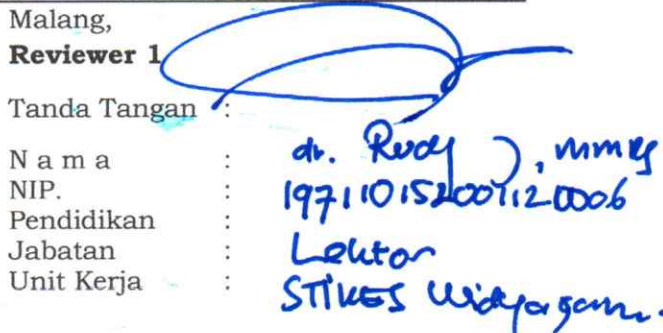 Malang,
Reviewer 1
Tanda Tangan :
N a m a : dr. Rudy J, MMRS
NIP. : 197110152001120006
Pendidikan :
Jabatan : Lektor
Unit Kerja : STIKES Widyagama